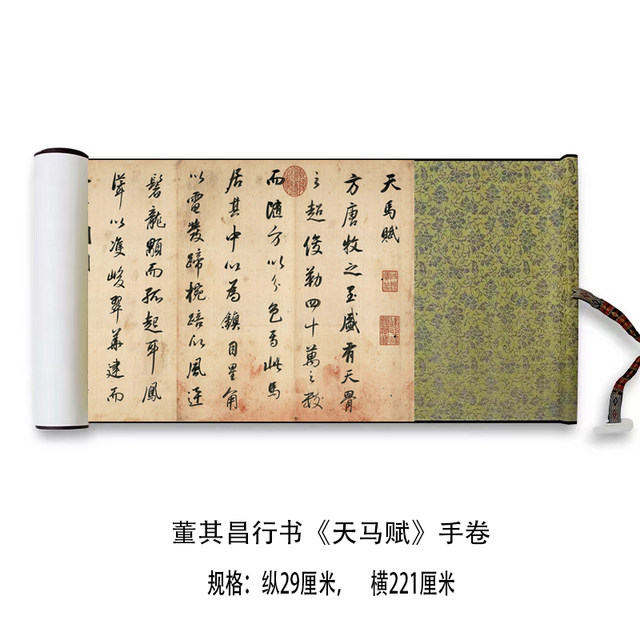 天馬賦
方唐牧之至盛有天骨
之超俊勒四十萬之數
而隨方以分色焉此馬
居其中以為鎮目星角
以電發蹄椀踣以風迅
鬐龍顒而孤起耳鳳
聳以雙峻翠華建而
董其昌行书《天马赋》手卷
规格：纵29厘米， 横221厘米